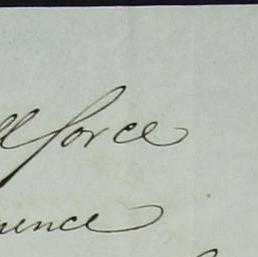 ll force
uence